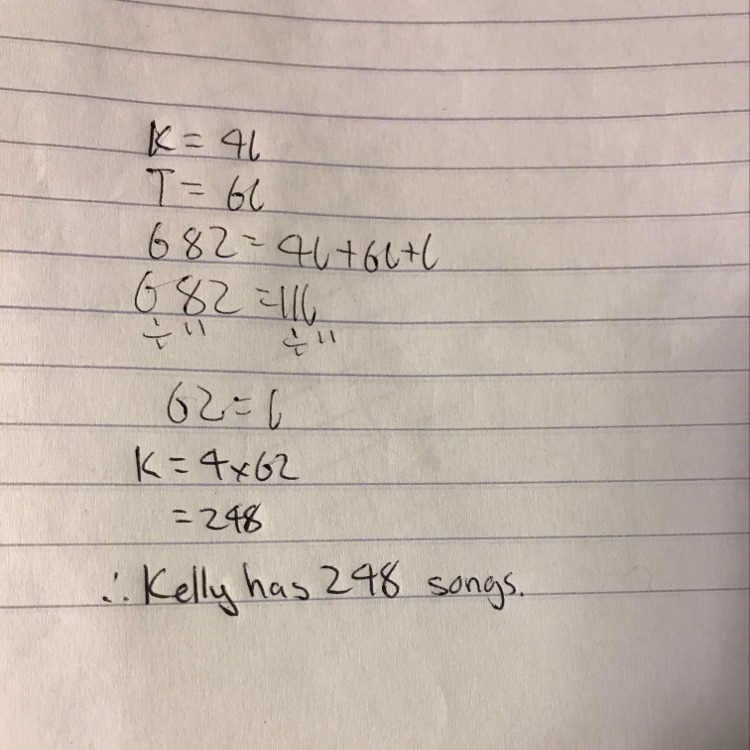 K = 4l
T = 6l
682 = 4l+6l+l
682 = 11l
÷11 ÷11
62 = l
K = 4×62
= 248
∴ Kelly has 248 songs.